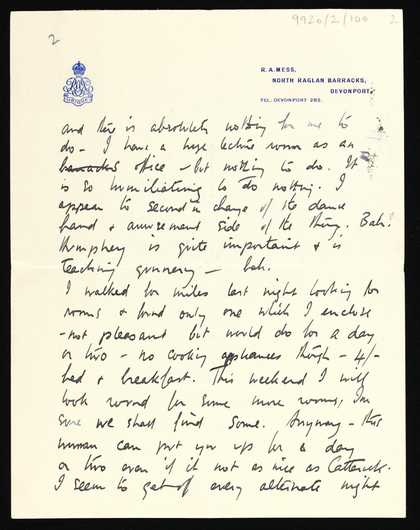 9920/2/100
2
2
R.A. MESS,
NORTH RAGLAN BARRACKS,
DEVONPORT.
TEL. DEVONPORT 282.
and there is absolutely nothing for me to
do – I have a huge lecture room as an
barracks office – but nothing to do. It
is so humiliating to do nothing. I
appear to second in charge of the dance
band & amusement side of the thing. Bah!
Humphrey is quite important & is
teaching gunnery – bah.
I walked for miles last night looking for
rooms & found only one which I enclose
– not pleasant but would do for a day
or two – no cooking appliances though – 4/-
bed & breakfast. This weekend I will
look round for some more rooms, I'm
sure we shall find some. Anyway – this
woman can put you up for a day
or two even if it not as nice as Catterick.
I seem to get off every alternate night